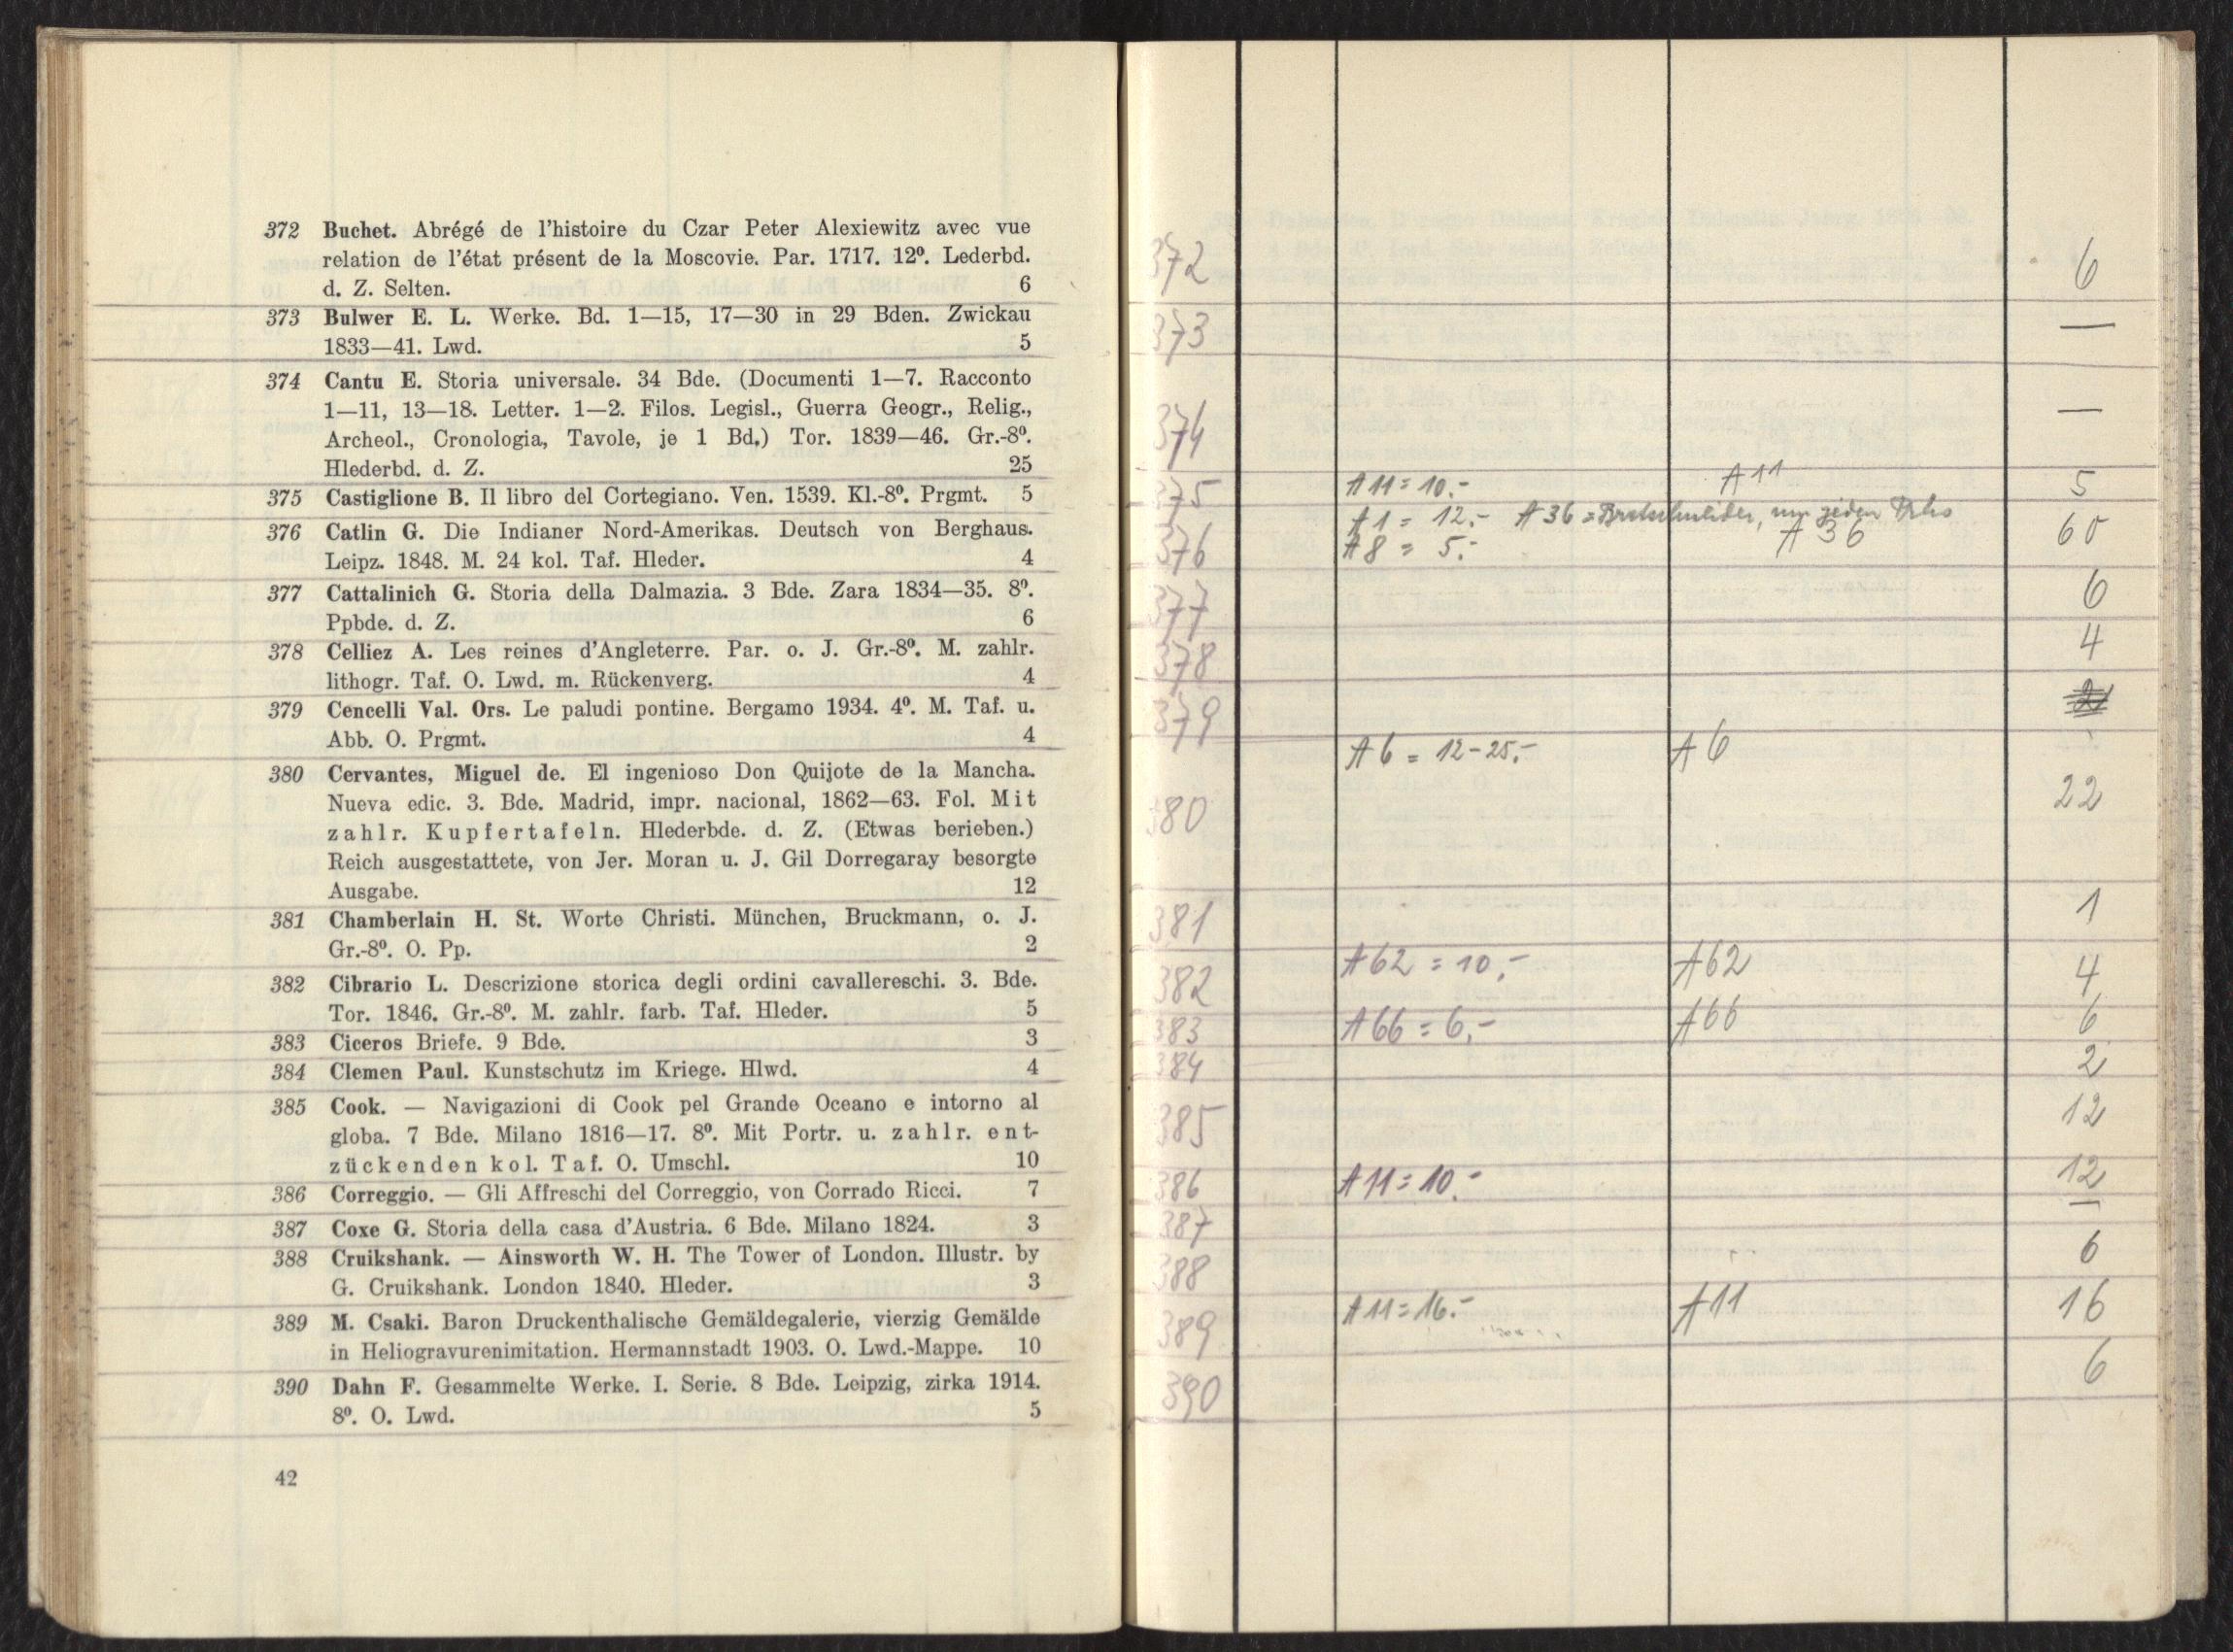 372 Buchet. Abrégé de l'histoire du Czar Peter Alexiewitz avec vue
relation de l'état présent de la Moscovie. Par. 1717. 12⁰. Lederbd.
d. Z. Selten. 6
373 Bulwer E. L. Werke. Bd. 1—15, 17—30 in 29 Bden. Zwickau
1833—41. Lwd. 5
374 Cantu E. Storia universale. 34 Bde. (Documenti 1—7. Racconto
1—11, 13—18. Letter. 1—2. Filos. Legisl., Guerra Geogr., Relig.,
Archeol., Cronologia, Tavole, je 1 Bd.) Tor. 1839—46. Gr.-8⁰.
Hlederbd. d. Z. 25
375 Castiglione B. Il libro del Cortegiano. Ven. 1539. Kl.-8⁰. Prgmt. 5
376 Catlin G. Die Indianer Nord-Amerikas. Deutsch von Berghaus.
Leipz. 1848. M. 24 kol. Taf. Hleder. 4
377 Cattalinich G. Storia della Dalmazia. 3 Bde. Zara 1834—35. 8⁰.
Ppbde. d. Z. 6
378 Celliez A. Les reines d'Angleterre. Par. o. J. Gr.-8⁰. M. zahlr.
lithogr. Taf. O. Lwd. m. Rückenverg. 4
379 Cencelli Val. Ors. Le paludi pontine. Bergamo 1934. 4⁰. M. Taf. u.
Abb. O. Prgmt. 4
380 Cervantes, Miguel de. El ingenioso Don Quijote de la Mancha.
Nueva edic. 3. Bde. Madrid, impr. nacional, 1862—63. Fol. Mit
zahlr. Kupfertafeln. Hlederbde. d. Z. (Etwas berieben.)
Reich ausgestattete, von Jer. Moran u. J. Gil Dorregaray besorgte
Ausgabe. 12
381 Chamberlain H. St. Worte Christi. München, Bruckmann, o. J.
Gr.-8⁰. O. Pp. 2
382 Cibrario L. Descrizione storica degli ordini cavallereschi. 3. Bde.
Tor. 1846. Gr.-8⁰. M. zahlr. farb. Taf. Hleder. 5
383 Ciceros Briefe. 9 Bde. 3
384 Clemen Paul. Kunstschutz im Kriege. Hlwd. 4
385 Cook. — Navigazioni di Cook pel Grande Oceano e intorno al
globa. 7 Bde. Milano 1816—17. 8⁰. Mit Portr. u. zahlr. ent-
zückenden kol. Taf. O. Umschl. 10
386 Correggio. — Gli Affreschi del Correggio, von Corrado Ricci. 7
387 Coxe G. Storia della casa d'Austria. 6 Bde. Milano 1824. 3
388 Cruikshank. — Ainsworth W. H. The Tower of London. Illustr. by
G. Cruikshank. London 1840. Hleder. 3
389 M. Csaki. Baron Druckenthalische Gemäldegalerie, vierzig Gemälde
in Heliogravurenimitation. Hermannstadt 1903. O. Lwd.-Mappe. 10
390 Dahn F. Gesammelte Werke. I. Serie. 8 Bde. Leipzig, zirka 1914.
8⁰. O. Lwd. 5
42
372 6
373 —
374 —
375 A 11 = 10.- A 11 5
A 1 = 12.- A 36 = Bretschneider, um jeden Preis
376 A 8 = 5.- A 36 60
377 6
378 4
379
A 6 = 12-25.- A 6
380 22
381 1
382 A 62 = 10.- A 62 4
383 A 66 = 6.- A 66 6
384 2
385 12
386 A 11 = 10.- 12
387 —
388 6
389 A 11 = 16.- A 11 16
390 6